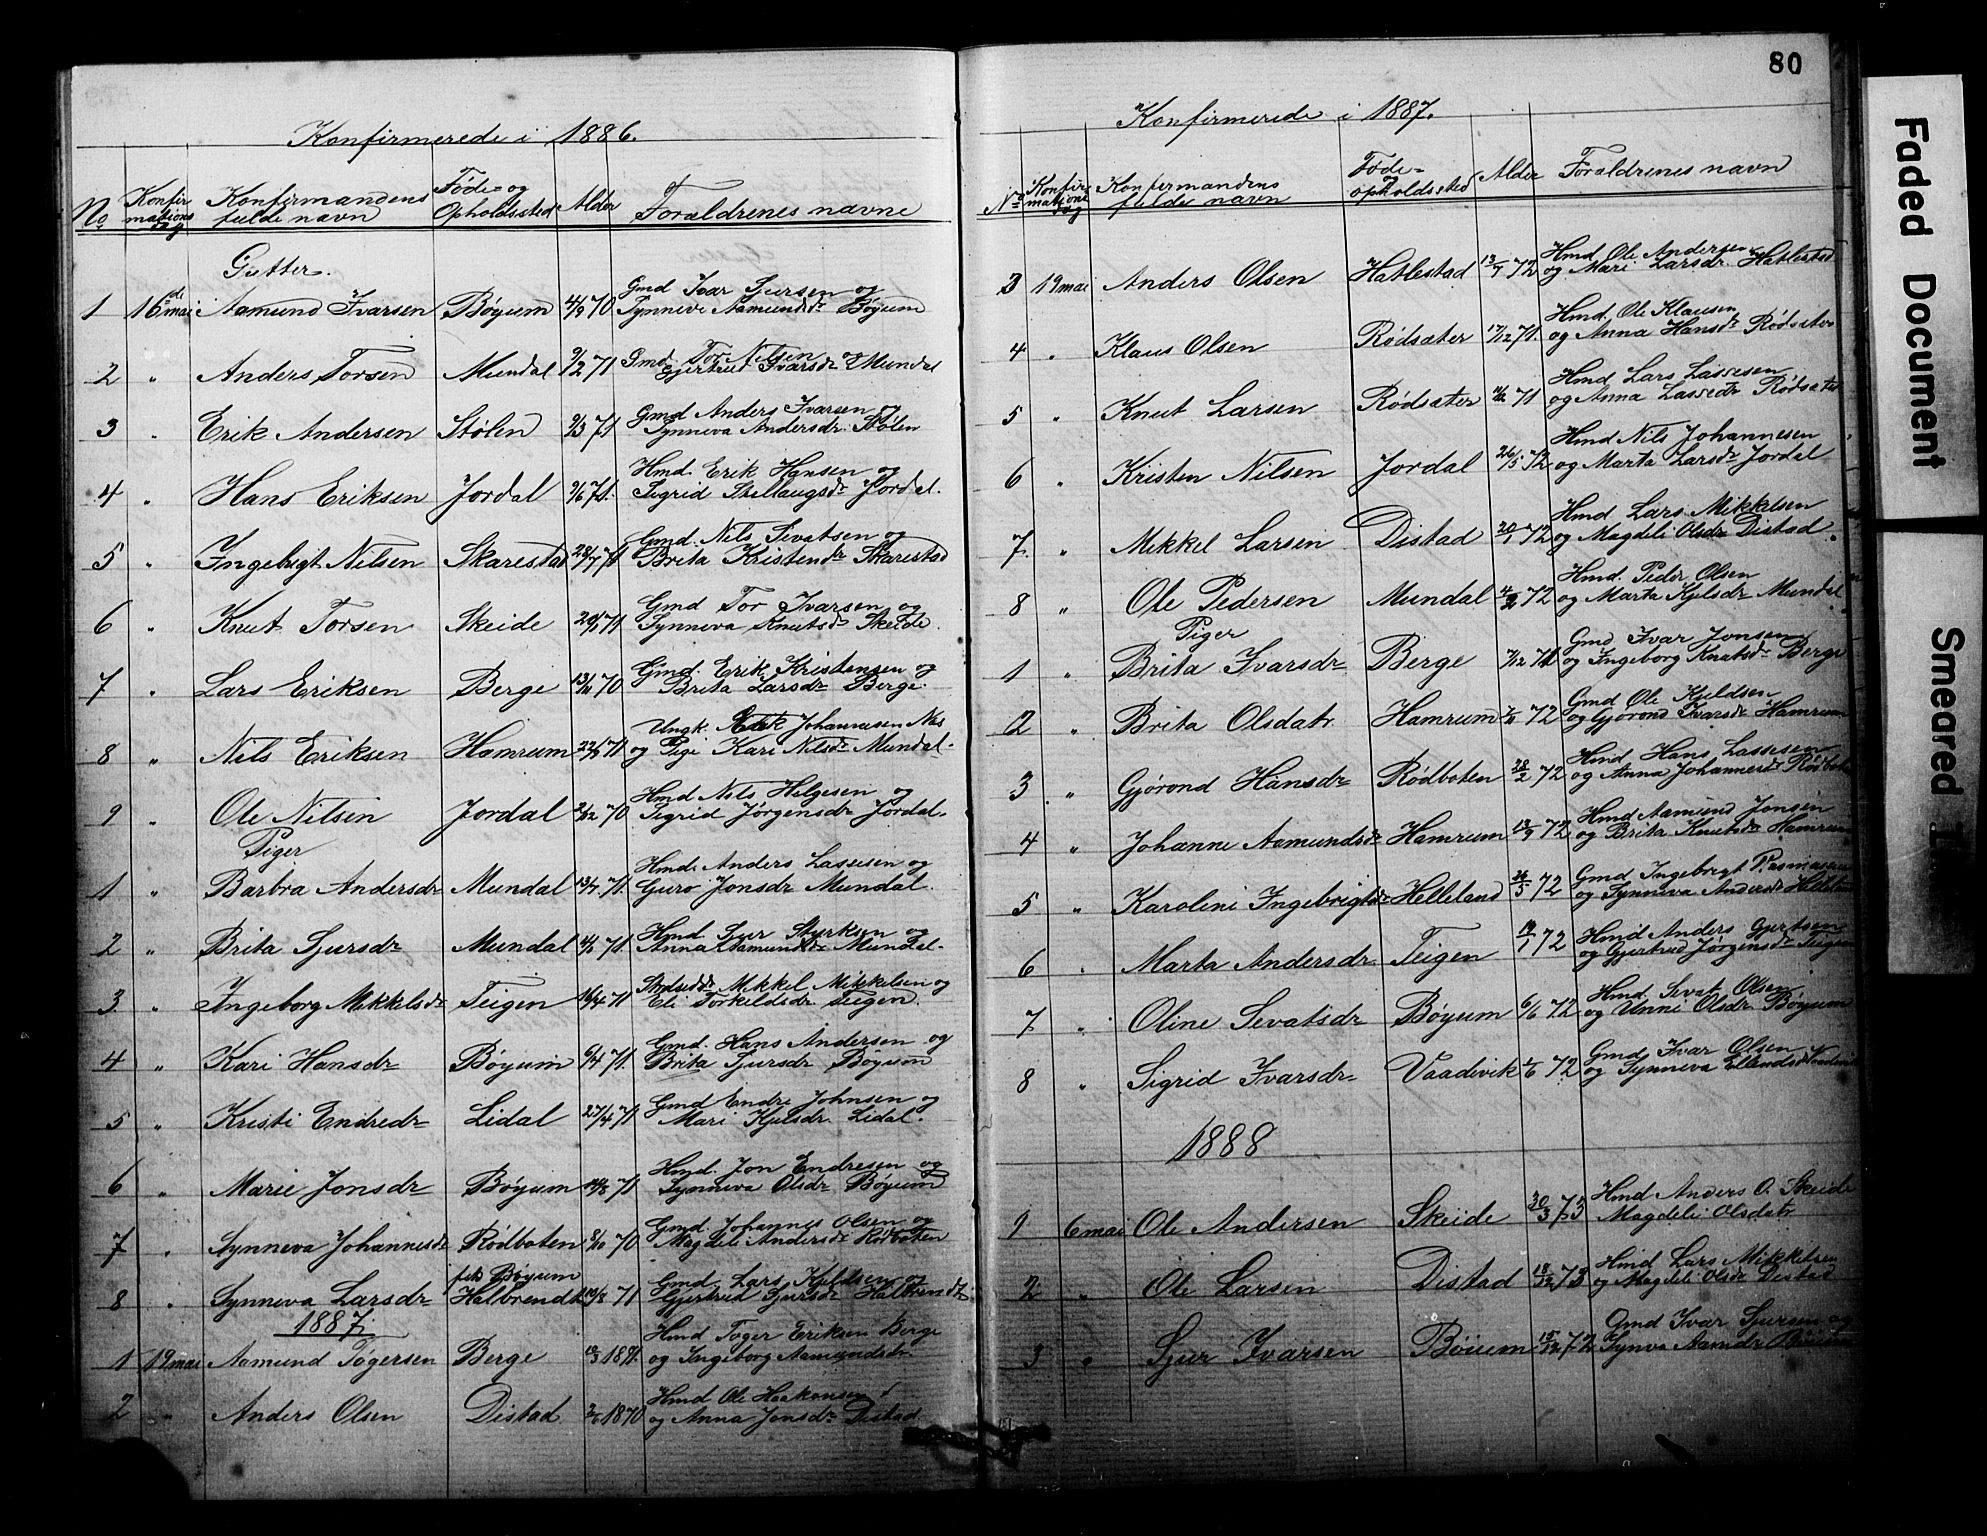 Konfirmerede i 1886.
No Konfirmations dag Konfirmandens fulde navn Føde- og Opholdssted Alder Forældrenes navne
Gutter.
1 16de mai Aamund Ivarsen Bøyum 4/9 70 Gmd Ivar Sjursen og
Synneve Aamundsdr Bøyum
2 " Anders Torsen Mundal 9/2 71 Gmd Tor Nilsen og
Gjertrud Ivarsdr Mundal
3 " Erik Andersen Stølen 9/3 71 Gmd Anders Ivarsen og
Synneva Andersdr. Stølen
4 " Hans Eriksen Jordal 9/6 71. Hmd. Erik Hansen og
Sigrid Stellaugsdr Jordal.
5 " Ingebrigt Nilsen Skarestad 28/7 71 Gmd. Nils Sevatsen og
Brita Kristendr Skarestad
6 " Knut Torsen Skeide 71 Gmd Tor Ivarsen og
Synneva Knutsdr Skeide.
7 " Lars Eriksen Berge 70 Gmd. Erik Kristensen og
Brita Larsdr Berge.
8 " Nils Eriksen Hamrum 71 Ungk. Erik Johannesen Nes
og Pige Kari Nilsdr Mundal.
9 " Ole Nilsen Jordal 2/12 70 Hmd Nils Helgesen og
Sigrid Jørgensdr Jordal.
Piger
1 " Barbra Andersdr Mundal 13/7 71. Hmd. Anders Lassesen og
Guro Jonsdr Mundal.
2 " Brita Sjursdr Mundal 71. Hmd. Sjur Styrksen og
Anna Aamundsdr Mundal.
3 " Ingeborg Mikkelsdr Teigen 16/4 71 Mikkel Mikkelsen og
Eli Torkildsdr Teigen.
4 " Kari Hansdr Bøyum 6/4 71. Gmd. Hans Andersen og
Brita Sjursdr Bøyum
5 " Kristi Endredr Lidal 27/4 71 Gmd Endre Johnsen og
Mari Kjelsdr. Lidal.
6 " Marie Jonsdr Bøyum 71 Hmd. Jon Endresen og
Synneva Olsdr Bøyum
7 " Synneva Johannesdr Rødboten 8/10 70 Gmd. Johannes Olsen og
Magdeli Andersdr Rødboten
8 " Synneva Larsdr Bøyum
Halbrendt 71 Gmd. Lars Kjeldsen og
Gjertrud Sjursdr Halbrendt
1887.
1 19 mai Aamund Tøgersen Berge 1871. Hmd Tøger Eriksen Berge
og Ingeborg Aamundsdr
2 " Anders Olsen Distad 1870 Hmd Ole Haakonsen
og Anna Jonsdr Distad
80
Konfirmerede i 1887.
No Konfirmations dag Konfirmandens fulde navn Føde- og opholdssted Alder Forældrenes navn
3 19 mai Anders Olsen Hatlestad 13/7 72 Hmd Ole Andersen
og Mari Larsdr. Hatlestad
4 " Klaus Olsen Rødsæter 17/12 71. Hmd. Ole Klausen
og Anna Hansdr Rødsæter
5 " Knut Larsen Rødsæter 71 Hmd Lars Lassesen
og Anna Lassedr Rødsæter
6 " Kristen Nilsen Jordal 26/5 72 Hmd Nils Johannesen
og Marta Larsdr Jordal
7. " Mikkel Larsen Distad 20/1 72 Hmd Lars Mikkelsen
og Magdeli Olsdr Distad.
8 " Ole Pedersen Mundal 72 Hmd. Peder Olsen
og Marta Kjelsdr Mundal
Piger
1 " Brita Ivarsdr Berge 7/12 71 Gmd Ivar Jonsen
og Ingeborg Knutsdr Berge
2 " Brita Olsdatr Hamrum 72 Gmd Ole Kjeldsen
og Gjørond Ivarsdr Hamrum
3 " Gjørond Hansdr Rødboten 28/2 72 Hmd Hans Lassesen
og Anna Johannesdr Rødboten
4 " Johanne Aamundsdr Hamrum 13/9 72 Hmd Aamund Jonsen
og Brita Knutsdr Hamrum
5 " Karoline Ingebrigtsdr Helleland 26/5 72 Gmd Ingebrigt Rasmussen
og Synneva Andersdr Helleland
6 " Marta Andersdr Teigen 19/1 72 Hmd Anders Gjertsen
og Gjertrud Jørgensdr Teigen
7 " Oline Sevatsdr Bøyum 6/6 72 Hmd. Sevat Olsen
og Unni Olsdr Bøyum
8 " Sigrid Ivarsdr Vaadevik 1/6 72 Gmd Ivar Olsen
og Synneva Ellendsdr Vaadevik
1888
1 6 mai Ole Andersen Skeide 30/3 73 Hmd Anders O. Skeide
Magdeli Olsdatr
2 " Ole Larsen Distad 18/12 73 Hmd Lars Mikkelsen
og Magdeli Olsdr Distad
3 " Sjur Ivarsen Bøium 15/12 72 Gmd Ivar Sjursen og
Synva Aamdr Bøium
Faded Document
Smeared